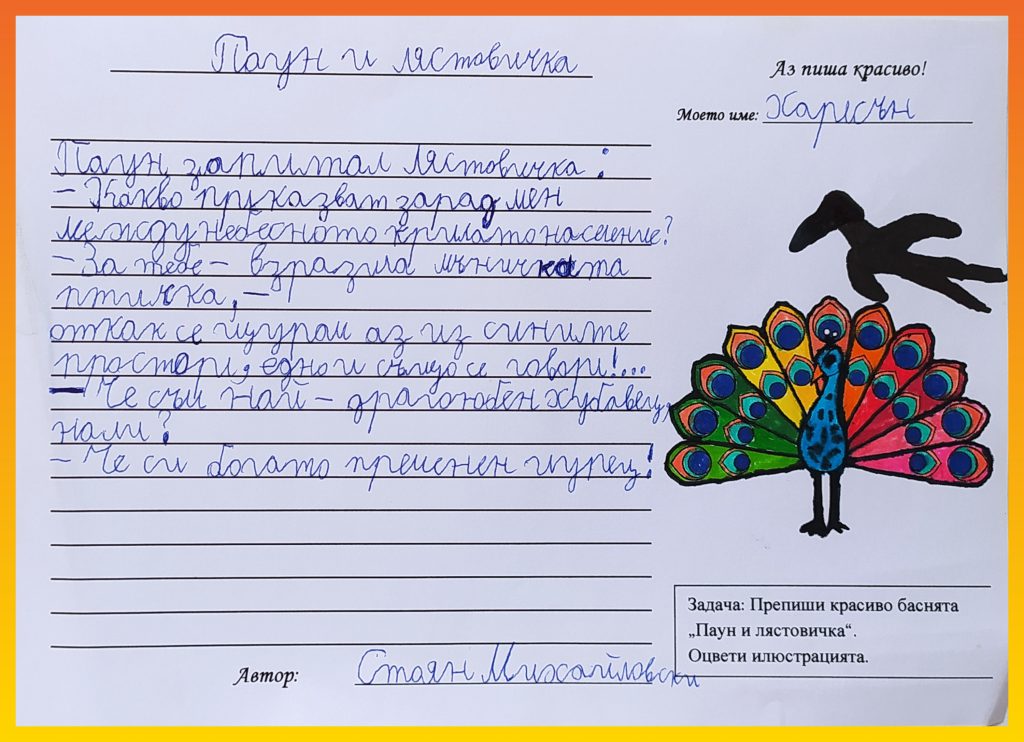 Паун и лястовичка
Аз пиша красиво!
Моето име: Харесън
Паун запитал лястовичка:
- Какво приказват зарад мен
между небесното крилато население?
- За тебе - възразила мъничката
птичка, -
откак се щурам аз из сините
простори, едно и също се говори!...
- Че съм най - драгоценен хубавец,
нали?
- Че си богато пременен щурец!
Автор: Стоян Михайловски
Задача: Препиши красиво баснята
„Паун и лястовичка“.
Оцвети илюстрацията.